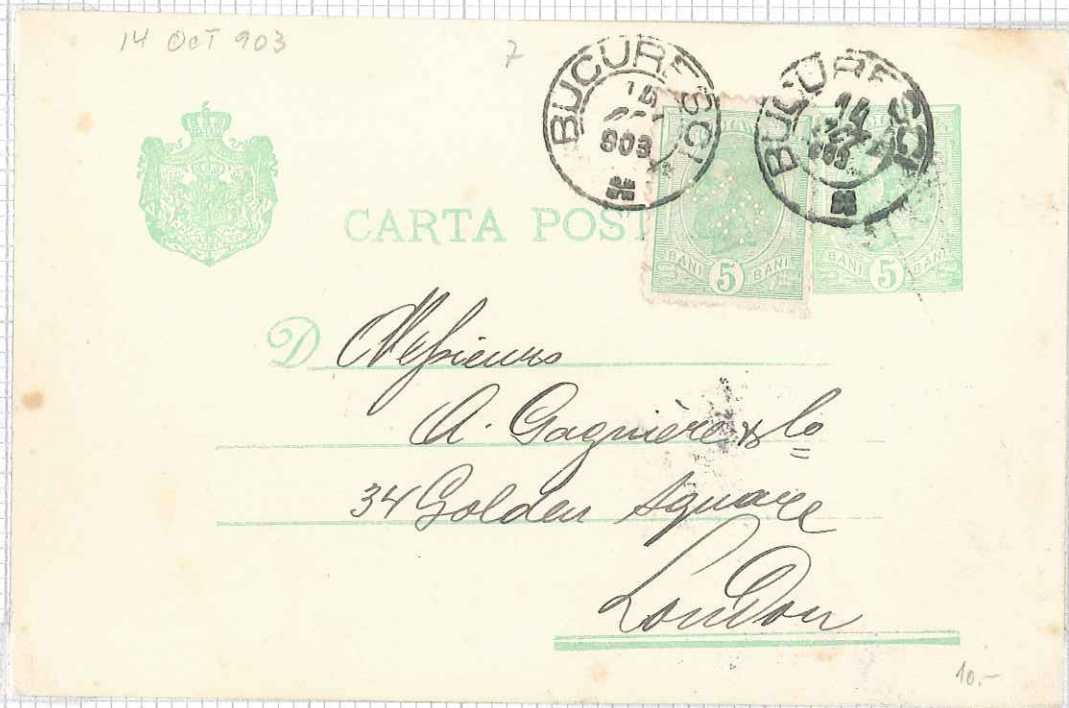 14 OCT 903
7
BUCURESCI
14
903
BUCURESCI
14
903
CARTA POST
BANI 5 BANI
BANI 5 BANI
D Messieurs
A. Gagnière & Co
34 Golden Square
London
10.-